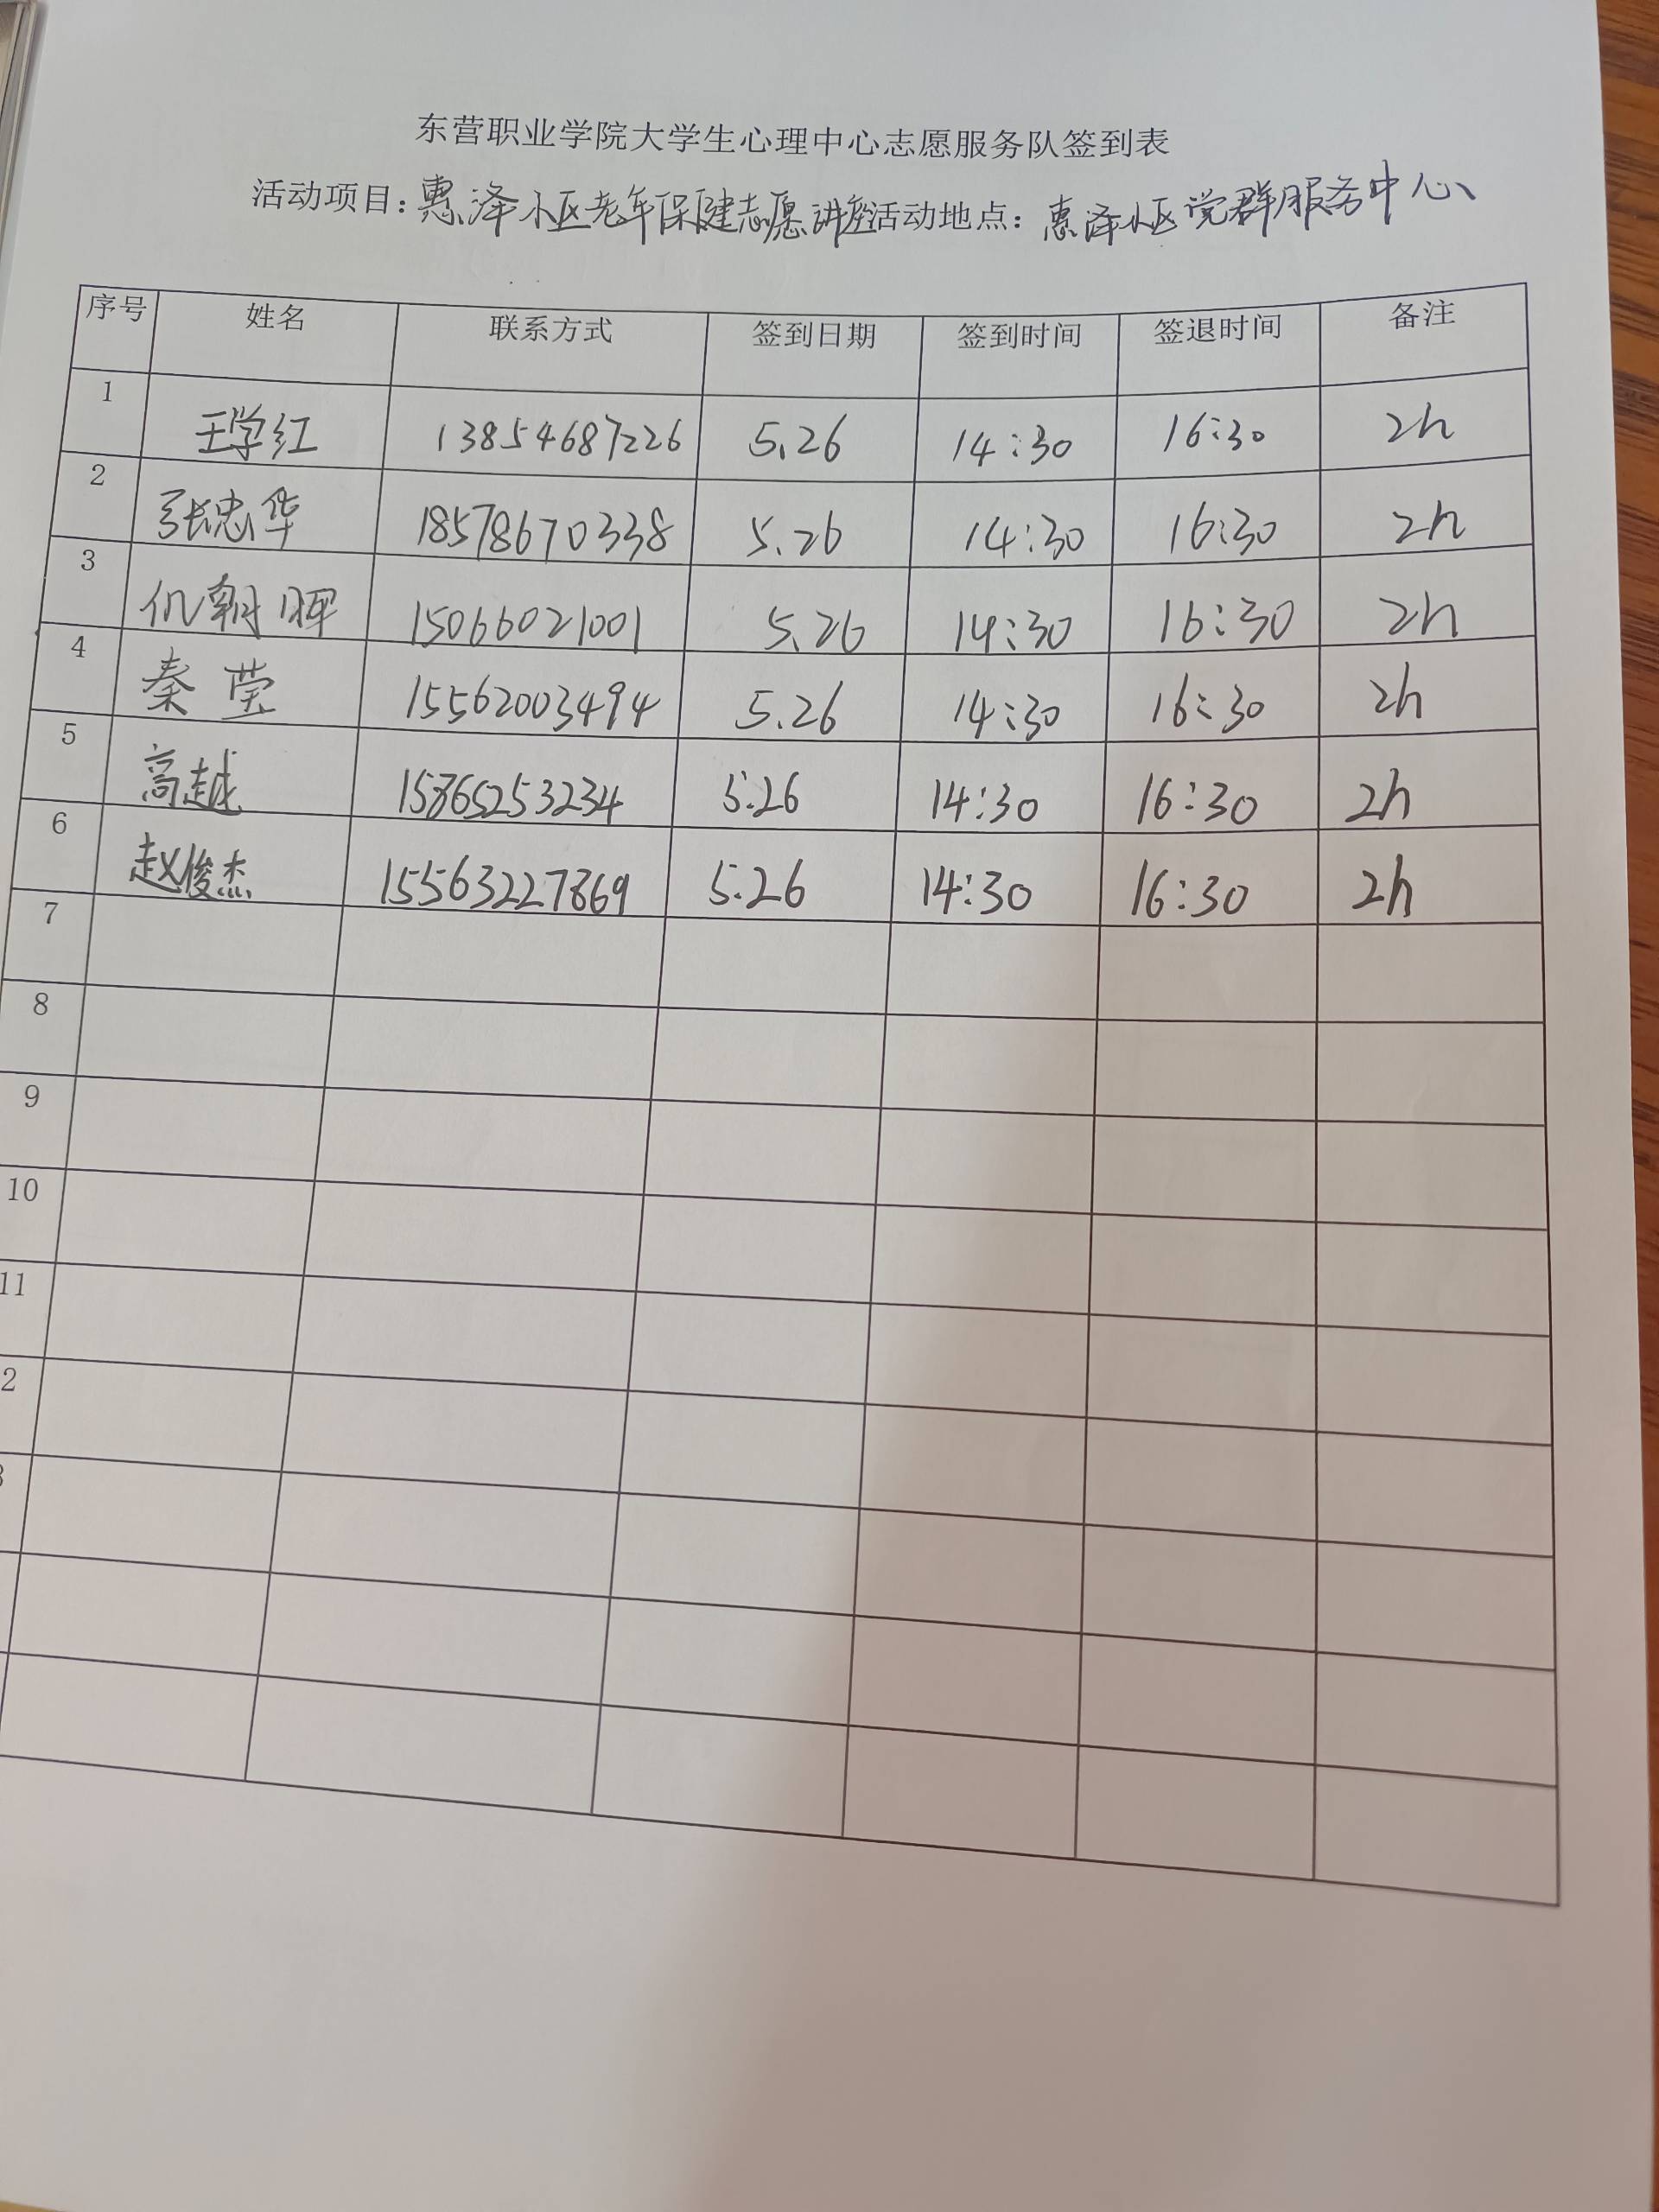 东营职业学院大学生心理中心志愿服务队签到表
活动项目：惠泽小区老年保健志愿讲座活动地点：惠泽小区党群服务中心
序号 姓名 联系方式 签到日期 签到时间 签退时间 备注
1 王学红 13854687226 5.26 14:30 16:30 2h
2 张忠华 18578670338 5.26 14:30 16:30 2h
3 仉朝晖 15066021001 5.26 14:30 16:30 2h
4 秦莹 15562003494 5.26 14:30 16:30 2h
5 高越 15865253234 5.26 14:30 16:30 2h
6 赵俊杰 15563227869 5.26 14:30 16:30 2h
7
8
9
10
11
2
3